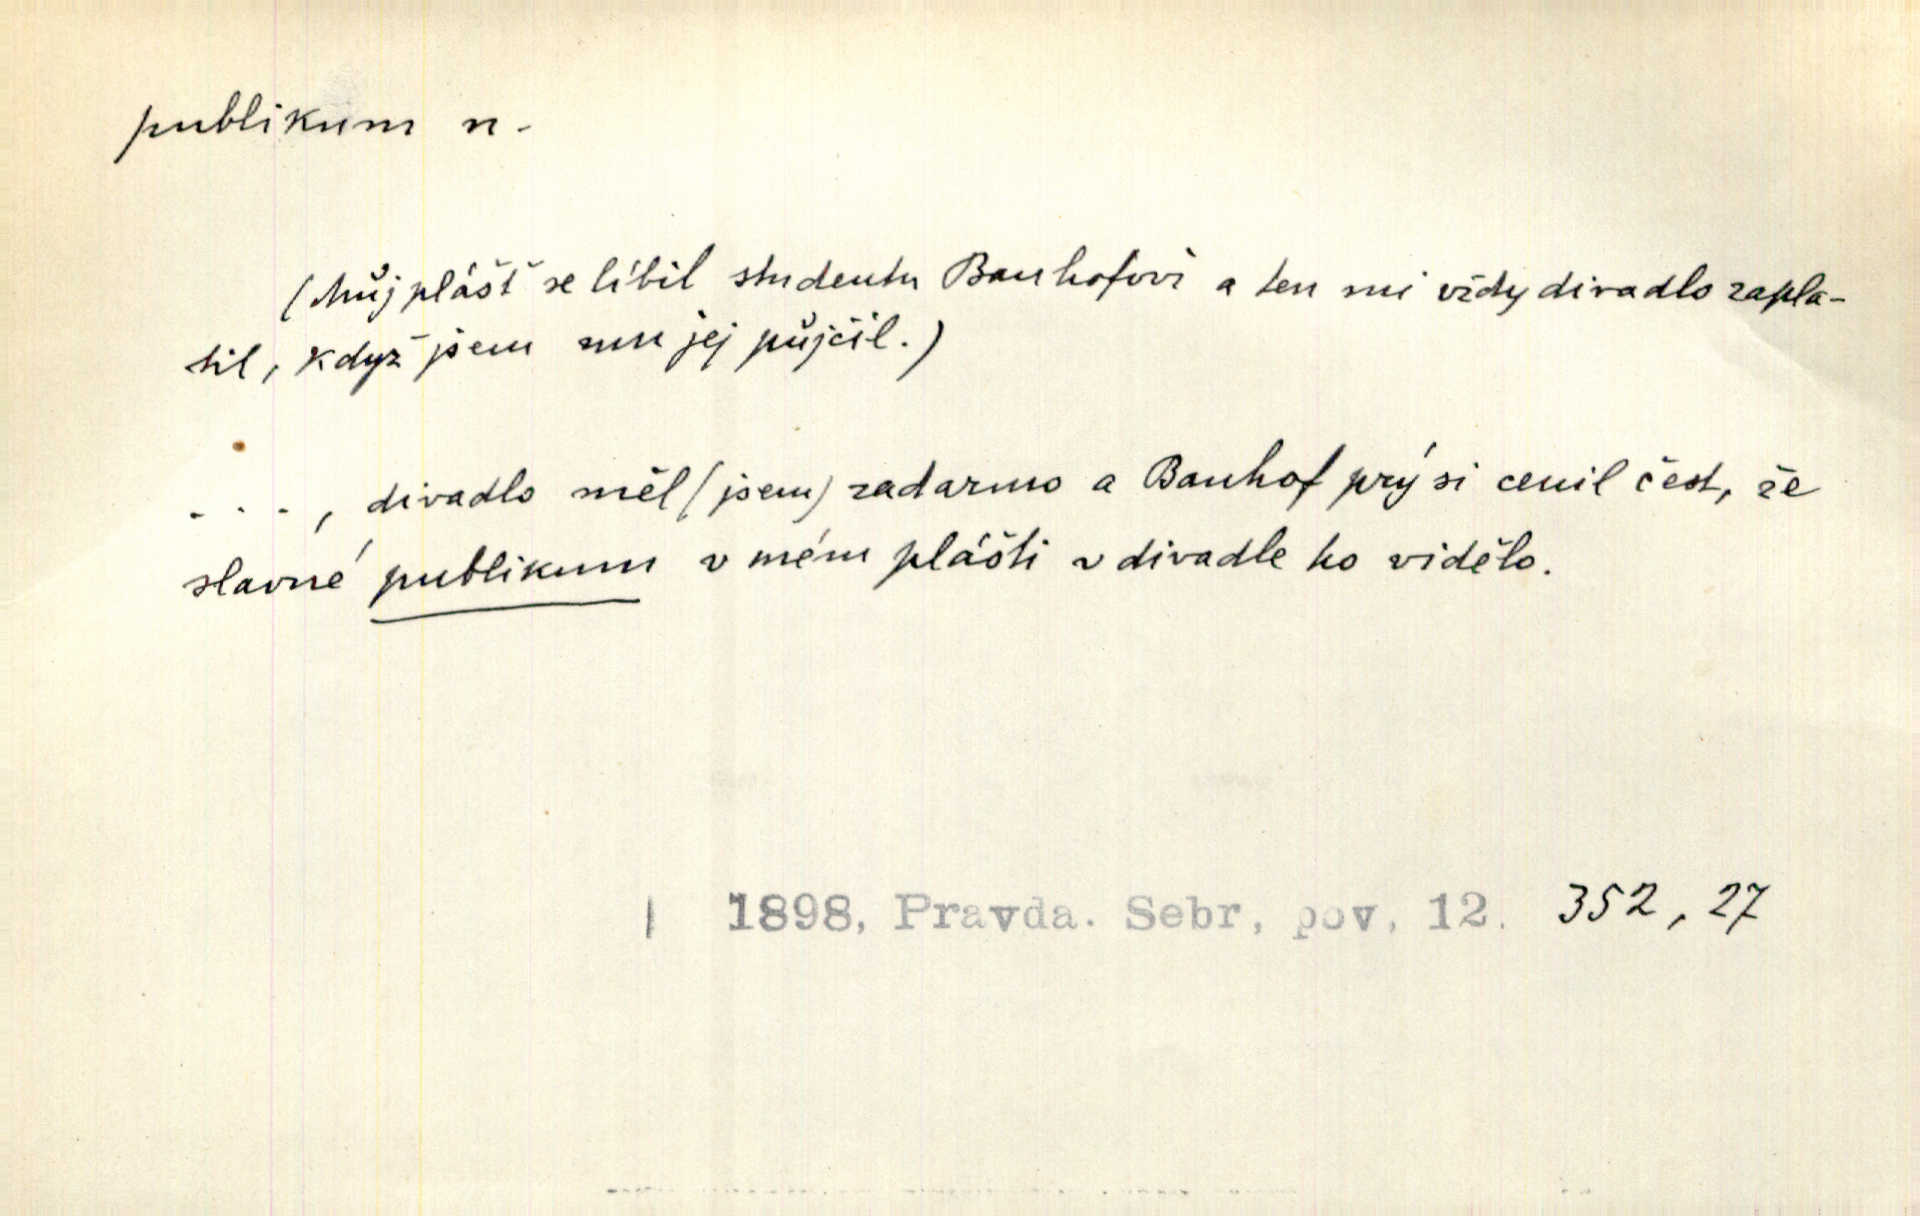 publikum n.
(Můj plášť se líbil studentu Banhofovi a ten mi vždy divadlo zapla-
til, když jsem mu jej půjčil.)
. . . , divadlo měl (jsem) zadarmo a Banhof prý si cenil čest, že
slavné publikum v mém plášti v divadle ho vidělo.
1898, Pravda. Sebr, pov, 12. 352, 27